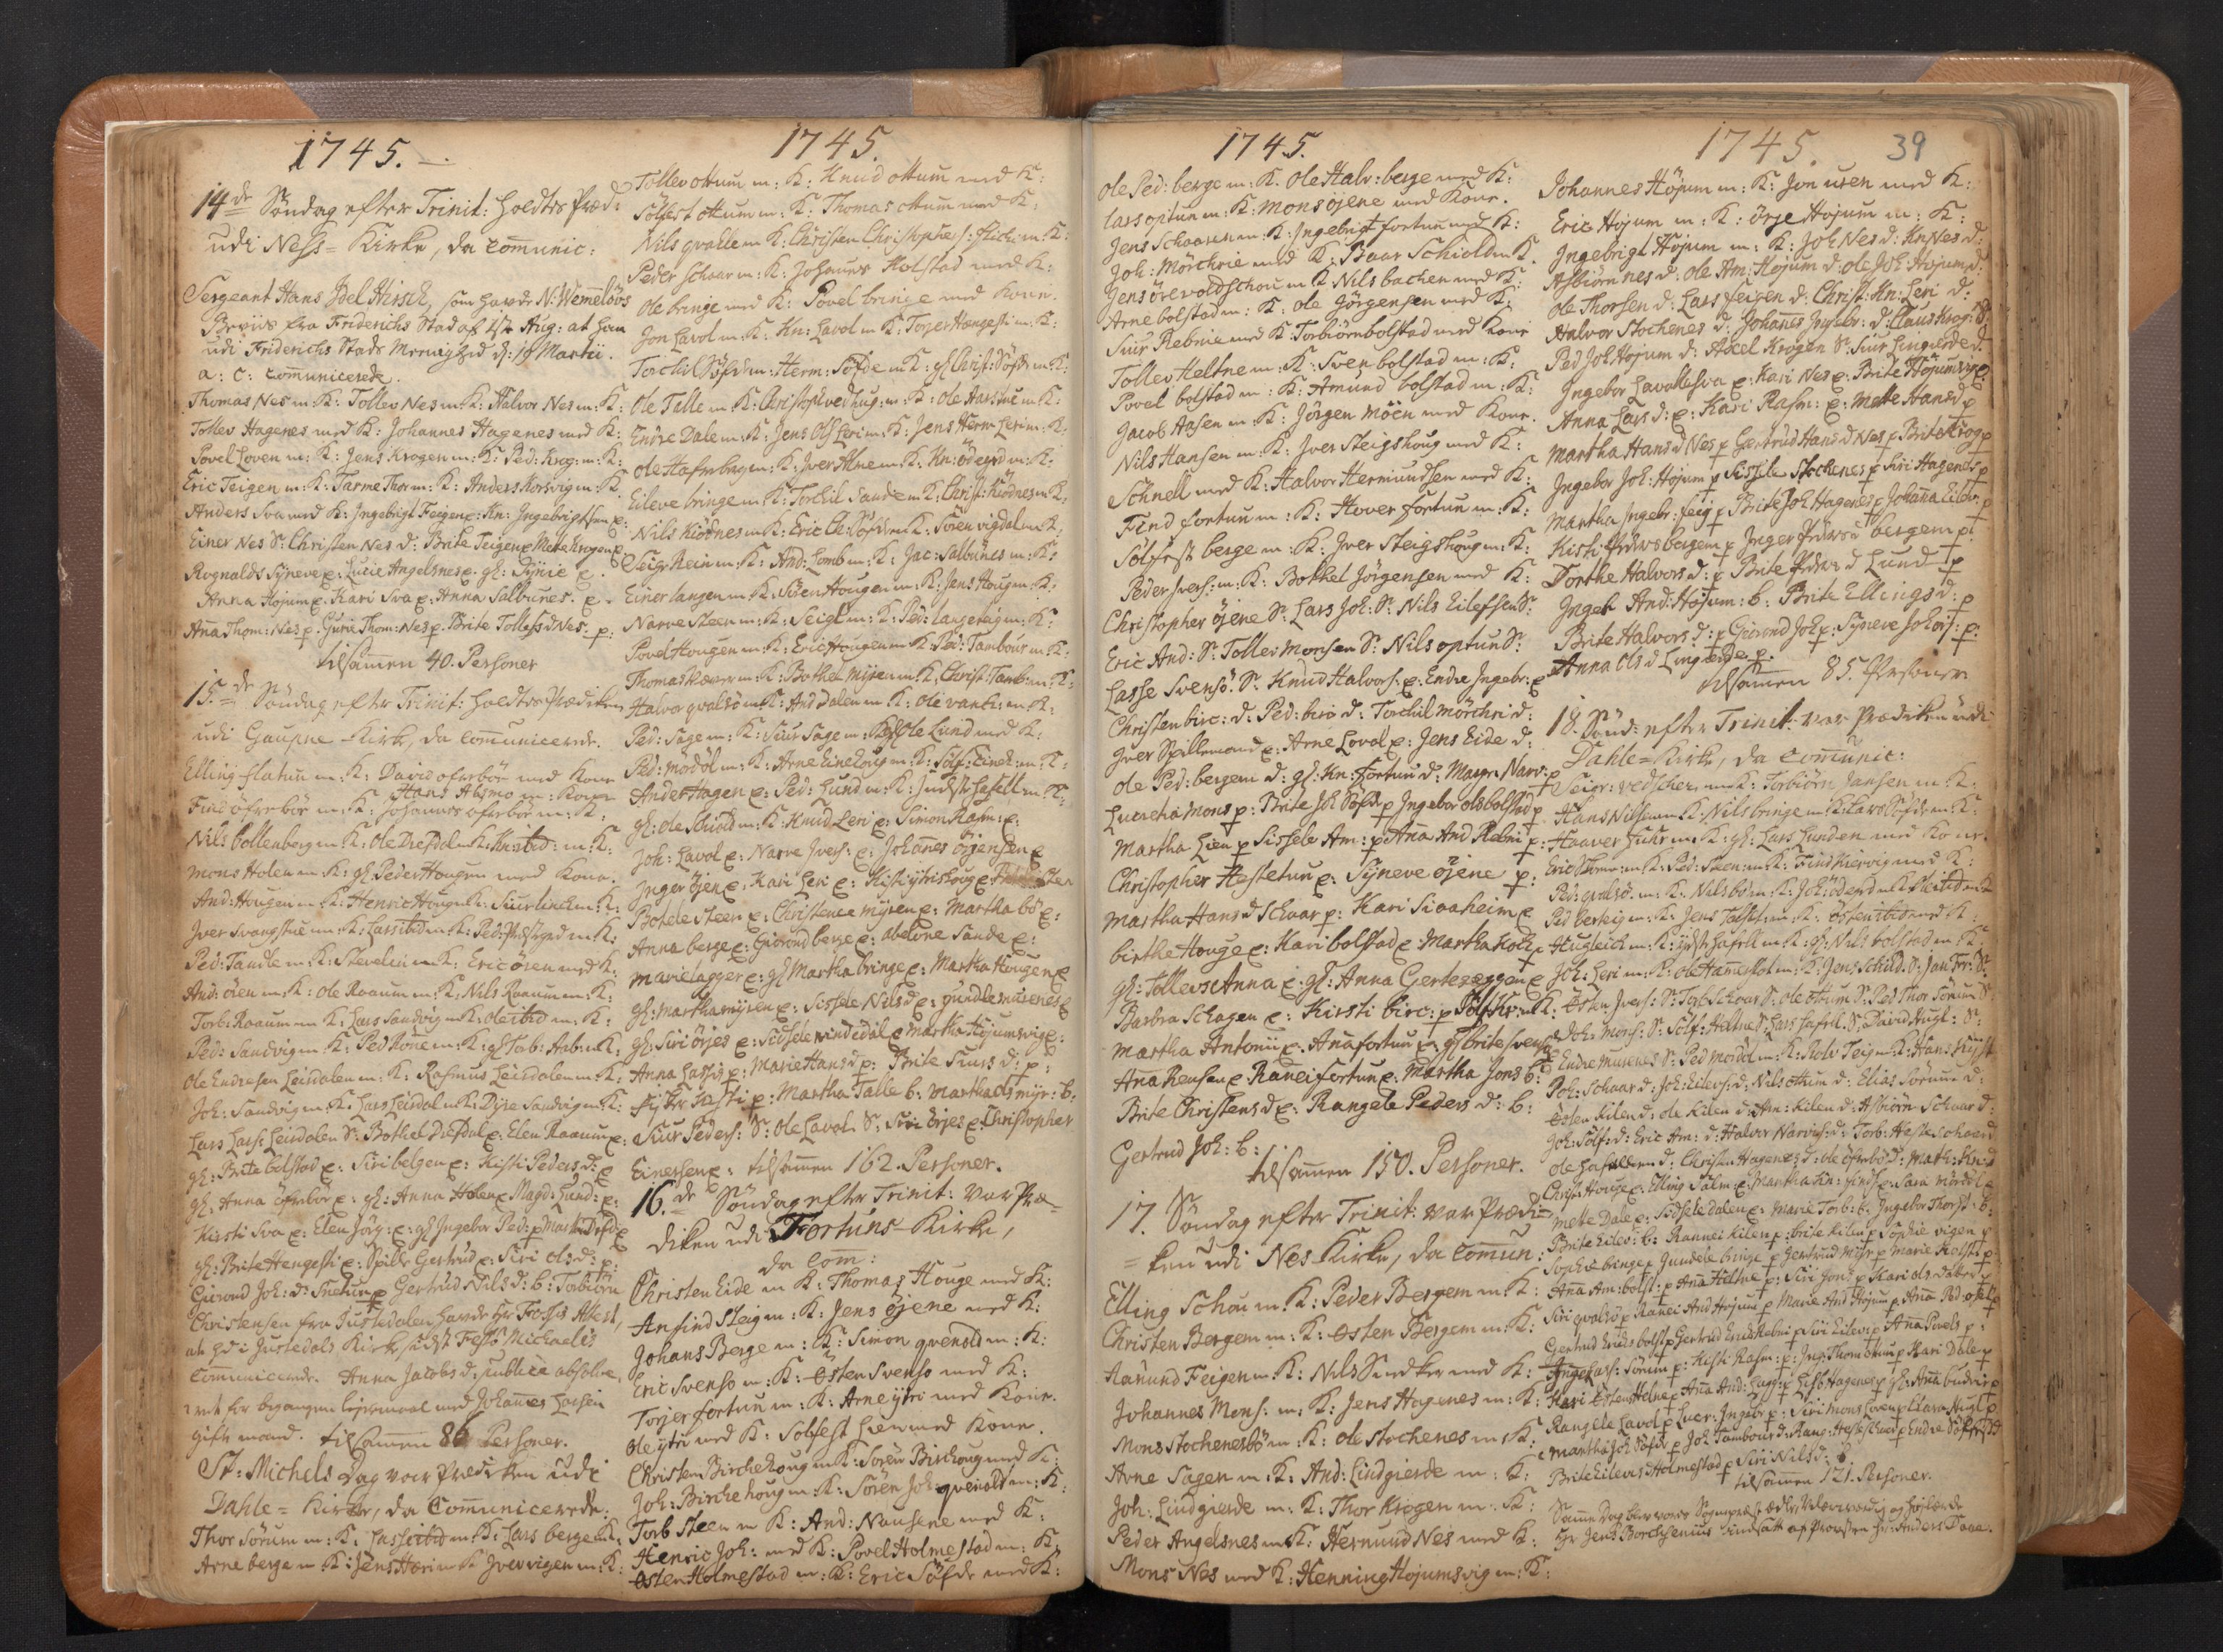 1745.
14de Söndag efter Trinit: holdtes Præd:
udi Ness-Kirke, da communic:
Sergeant Hans Idel Hirsch, som havde N: Wemmelövs
Beviis fra Friderichs Stad af Aug: at han
udi Friderichs Stads Menighed d: Martii.
a: c: communicerede.
Thomas Nes m: K: Tollev Nes m: K: Halvor Nes m: K:
Tollev Hagenes med K: Johannes Hagenes med K:
Povel Loven m: K: Jens Krogen m: K: Ped: Krog: m: K:
Eric Teigen m: K: Tarme Thor m: K: Anders Korsvig m: K
Anders Sva med K: Ingebrigt Feigen e: Kn: Ingebrigtsen e:
Einer Nes S: Christen Nes d: Brite Teigen e Mete Krogen e
Rognalds Syneve e: Lucie Angelsnes e: gl: Synie e.
Anna Höjum e. Kari Sva e: Anna Salbunes. e.
Anna Thom: Nes p. Guri Thom: Nes p. Brite Tollefsd Nes. p:
tilsammen 40. Personer
15.de Söndag efter Trinit: holdtes Prædiken
udi Gaupne-Kirke, da communicerede.
Elling flatun m: K: David ofrebör med Kone
Hans Alsmo m: Kone
Find ofrebör m: K: Johannes ofrebör m: K:
Nils bollenberg m: K: Ole Drefdal m: K: Kn: ibid: m: K:
Mons Holen m: K: gl Peder Hougen med Kone.
And: Hougen m: K: Henric Hougen K: Siur linck m: K:
Iver Svangstue m: K: Lars ibid m: K: Ped: Prestegrd m: K:
Ped: Tandle m: K: Stevelin m: K: Eric öien med K:
And: öien m: K: Ole Raaum m: K: Nils Raaum m: K:
Torb: Raaum m: K: Lars Sandvig m: K: ole ibid m: K:
Ped: Sandvig m: K: Ped Röne m: K: gl Torb: Anb: m: K:
Ole Endresen Leirdalen m: K: Rasmus Leirdalen m: K:
Joh: Sandvig m: K: Lars Leirdal m: K: Dyre Sandvig m: K:
Lars Lars: Leirdalen S: Bothel Drefdal e: Elen Raaum e:
gl: Brite bolstad e: Siri belgen e: Kisti Peders d: e
gl: Anna öfrebör e: gl: Anna Holen e Magd: Lund: p:
Kirsti Sva e: Elen Jörg: e: gl Ingebor Ped: p
gl: Brite Hengesti e: Spille Gertrud e: Siri ols: d: p:
Giörond Joh: d: Snetun p Gertrud Nils d: b: Torbiörn
Christensen fra Justedalen havde Hr Attest,
at i Justedals Kirke sidst Festo Michaelis
communicerede. Anna Jacobs d: publice absolve
ret for begangen lejermaal med Johannes Larsen
gift mand. tilsammen 86 Personer.
St: Michels Dag var Prediken udi
Dahle-Kirke, da Communicerede:
Thor Sörum m: K: Lars ibid m: K: Lars berge m: K.
Arne berge m: K: Jens Hari m: K Iver vigen m: K:
1745.
Tollev ottum m: K: Knud ottum med K:
Sölfest ottum m: K: Thomas ottum med K:
Nils qvalle m K: Christen Christophers: m: K:
Peder Schaar m: K: Johannes Kolstad med K:
Ole bringe med K: Povel bringe med Kone.
Jon Lavol m: K: Kn: Lavol m K: Torger Hangesti m: K:
Torchil Söfde m: Herm: Söfde m K: gl Christ: Söfde m: K:
Ole Talle m: K: Christoph ved Lug: m: K: Ole Harstue m: K:
Endre Dale m: K: Jens Ols Leri m: K: Jens Herm Leri m: K:
Ole Hafnsberg m: K: Iver Alme m: K: Kn: ödegrd m: K:
Eileve bringe m: K: Torchil Sande m K: Christ: Kiödnes m K:
Nils Kiödnes m: K: Eric Ell: m: K: Sören vigdal m: K:
Seigr Rein m: K: And: Lomb m: K: Jac: Salbunes m: K:
Einer langen m: K: Sören Hougen m: K: Jens Houg m: K:
Narve Steen m: K: Seigl m: K: Ped: langeteig m: K:
Povel Hougen m: K: Eric Hougen m K: Ped: Tambour m: K:
Thomas m: K: Bothel Myren m: K: Christ: Tamb: m: K:
Halvor qvalsö m: K: And Dalen m: K: Ole m: K:
Ped: Sage m: K: Siur Sage m: K: Ole Lund med K:
Ped: mordöl m: K: Arne Einehoug m: K: Sölf: Einek: m: K:
Ander Hagen e: Ped: Lund m: K: Hafell m: K:
gl: ole Schiold m: K: Knud Leri e: Simon Rasm: e:
Joh: Lavol e: Narve Ivers: e: Johannes örjensen e
Inger öjen e: Kari Leri e: Kisti e
Botele Steen e: Christence myren e: Martha bö e:
Anna berge e: Giörond berge e: abelone Sande e:
Marie lagger e: gl Martha bringe e: Martha Hougen e
gl: Martha myren e: Sissele Nils d e: gundle musenes e
gl: Siri örjes e: Sidsele vindedal e Martha Höjumsvig e:
Anna Larsd: p: Marie Hansd p: Brite Siurs d: p:
Kisti p: Martha Talle b: Martha ols myr: b:
Siur Peders: S: Ole Lavol S: Siri örjes e: Christopher
Einersen e: tilsammen 162. Personer.
16.de Söndag efter Trinit: var Præ-
diken udi Fortuns-Kirke,
da com:
Christen Eide m: K: Thomas Houge med K:
Anfind Steig m: K: Jens öjene med K:
Johans Berge m: K: Simon qvenold m: K:
Eric Svensö m: K: Östen Svensö med K:
Torjer fortun m: K: Arne ytri med Kone.
Ole ytri med K: Solfest Lien med Kone.
Christen Birchehoug m K: Sören Birchoug med K:
Joh: Birchehoug m: K: Sören Joh: qvenold m: K:
Torb Steen m K: And: Nausene med K:
Henric Joh: med K: Povel Holmestad m: K:
Östen Holmestad m: K: Eric Söfde med K:
1745.
Ole Ped: berge m: K. Ole Halv: berge med K:
Lars optun m: K: Mons öjene med Kone.
Jens Schaaren m: K: Ingebrigt fortun med K:
Joh: Mörchrie med K: Baar Schiold m K.
Jens örevoldschou m K Nils bachen med K:
Arne bolstad m: K: Ole Görgensen med K:
Siur Rebnie med K Torbiörn bolstad med Kone
Tollev Heltne m: K: Sven bolstad m: K:
Povel bolstad m: K: Amund bolstad m: K:
Jacob Aasen m: K: Jörgen Möen med Kone.
Nils Hansen m: K: Iver Steigshoug med K:
Schnell med K: Halvor Hermundsen med K:
Find fortun m: K: Hover fortun m: K:
Sölfest berge m: K: Iver Steigshoug m: K:
Peder Ivers: m: K: Bothel Jörgensen med K:
Christopher öjene S: Lars Joh: S: Nils Eilefsen S:
Eric And: S: Tollev Monsen S: Nils optun S:
Lasse Svensö: S: Knud Halvors: e: Endre Ingebr: e
Christen birc: d: Ped: biri d: Torchil Mörchri d:
Iver Spillemand e: Arne Lovol e: Jens Eide d:
Ole Ped: bergem d: gl: Kn: fortun d: Margr: Narv: p
Lucretia Mons p: Brite Joh Söfde p Ingebor ols bolstad p
Martha Lien p Sissele Am: p Anna And Rebni p:
Christopher Hestetun e: Syneve öjene p:
Martha Hans d Schaar p: Kari Siaaheim e
birthe Houge e: Kari bolstad e Martha Koch e
gl: Tollevs Anna e: gl: Anna Gerteseggen e
Barbra Schagen e: Kirsti birc: p Sölf: Kr: m K:
Martha Antonii e: Ana fortun e gl brite Svensö
Anna Rensen e Ranei fortun e: Martha Jons b:
Brite Christensd e: Rangele Peders d: b:
Gertrud Joh: b:
tilsammen 150. Personer.
17. Söndag efter Trinit: var Prædi-
ken udi Nes Kirke, da commun:
Elling Schou m: K: Peder Bergem m: K:
Christen Bergem m: K: Östen Bergem m: K:
Aanund Feigen m: K: Nils Smed Ker med K:
Johannes Mons: m: K: Jens Hagenes m: K:
Mons Stochenesbö m: K: Ole Stochenes m: K:
Arne Sagen m: K: And: Lindgierde m: K:
Joh: Lindgierde m: K: Thor Krogen m: K:
Peder Angelsnes m K: Hermund Nes med K:
Mons Nes med K: Henning Höjumsvig m: K:
1745. 39
Johannes Höjum m: K: Jon uren med K:
Eric Höjum m: K: örje Höjum m: K:
Ingebrigt Höjum m: K: Joh Nes d: Kn Nes d:
Asbiörn nes d: Ole Am: Höjum d: Ole Joh: Höjum d:
Ole Thorsen d: Lars feigen d: Christ: Kn: Leri d:
Halvor Stochenes d: Johannes Ingebr: d: Claus Krog: S:
Ped Joh Höjum d: Axel Krogen S: Siur Lingierde d.
Ingebor Lavolle Sva e: Kari Nes e: Brite Höjumsvig e
Anna Lars d: e: Kari Rasm: e: Mette Hansd p
Martha Hansd Nes p Gertrud Hansd Nes p Brite Krog p
Ingebor Joh: Höjum p Sissele Stochenes p Siri Hagenes p
Martha Ingebr: feig p Brite Joh Hagenes p Johanna Eilev: p
Kisti bergem p Inger bergem p
Dorthe Halvors d: p Brite d Lund p
Ingeb And: Höjum: b: Brite Ellingsd: p
Brite Halvors d: p Giörond Joh p: Syneve Johs: p:
Anna Ols d Lingierde p.
tilsammen 85. Personer
18. Sönd: efter Trinit: var Prædiken udi
Dahle-Kirke, da communic:
Seigr: vedscher m: K: Torbiörn Jansen m: K:
Hans Nilsen m K: Nils bringe m: K: Lars Söfde m: K:
Haaver Fuhr m: K: gl: Lars Lunden med Kone.
Eric m: K: Ped: Steen: m K: Find Kiervig med K:
Ped: qvalsö m: K: Nils bö m: K: Joh: ödegrd m K
Ped berteig m: K: Jens Tolfst: m: K: Östen ibid med K:
Hugleick m: K: hafell m: K: gl: Nils bolstad m: K:
Joh: Leri m: K: Ole Hammeslot m: K: Jens Schild: S: Jan For: S:
Östen Ivers: S: Torb: Schaar S: Ole ottum S: Ped Thor Sörum S
Joh: Mons: S: Sölf: Heltne S: Lars hafell. S: David Augl: S:
Endre Musenes S: Ped mordöl m: K: Rolv Teig m: K: Hans
Joh: Schaar d: Joh: Eilevs: d: Nils ottum d: Elias Sörum d:
Östen Kilen d: Ole Kilen d: Am: Kilen d: Asbiörn Schaar d:
Joh: Sölf: d: Eric Am: d: Halvor Narves: d: Torb:
Ole hafellen d: Christen Hagenes d: Ole öfrebö d: Math: Kn: d
Christ: Houge e: Elling Salm: e: Martha Kn: e Sara mördöl e
Mette Dale e: Sidsele dalen e: Marie Torb: b: Ingebor Thorst: b:
Brite Eilev: b: Rannei Kilen p: brite Kilen p Sophie vigen p
Sophie bringe p Gundele bringe p Gertrud Myr p Marie Kolst: p
Anna Am: bolst: p Anna Heltne p: Siri Jons p Kari ols dotter p
Siri qvalsö p Ranei And Höjum p Marie And Höjum p Anna Ped: p
Gertrud bolst p Gertrud Rebni p Siri Eilev: p Anna Povels p:
Inge Lars: Sörum p: Kisti Rasm: p: Ing: Thom p Kari Dale p
Kari Östens Helne p Anna And: Lagg: p Hagenes p gl: Anna p
Rangele Lavol p Lucr: Ingebr p: Siri Mons Loven p Augl p
Martha Joh Söfde p Joh Tambour d: Rang: p Endre Söfde d
Brite Eilevs Holmestad p Siri Nils d: b.
tilsammen 121. Personer.
Samme Dag blev vores Sogneprest ædle, Velærværdig og Höylærde
Hr Jens Borchsenius Indsatt af Provsten Hr: Anders Daae.